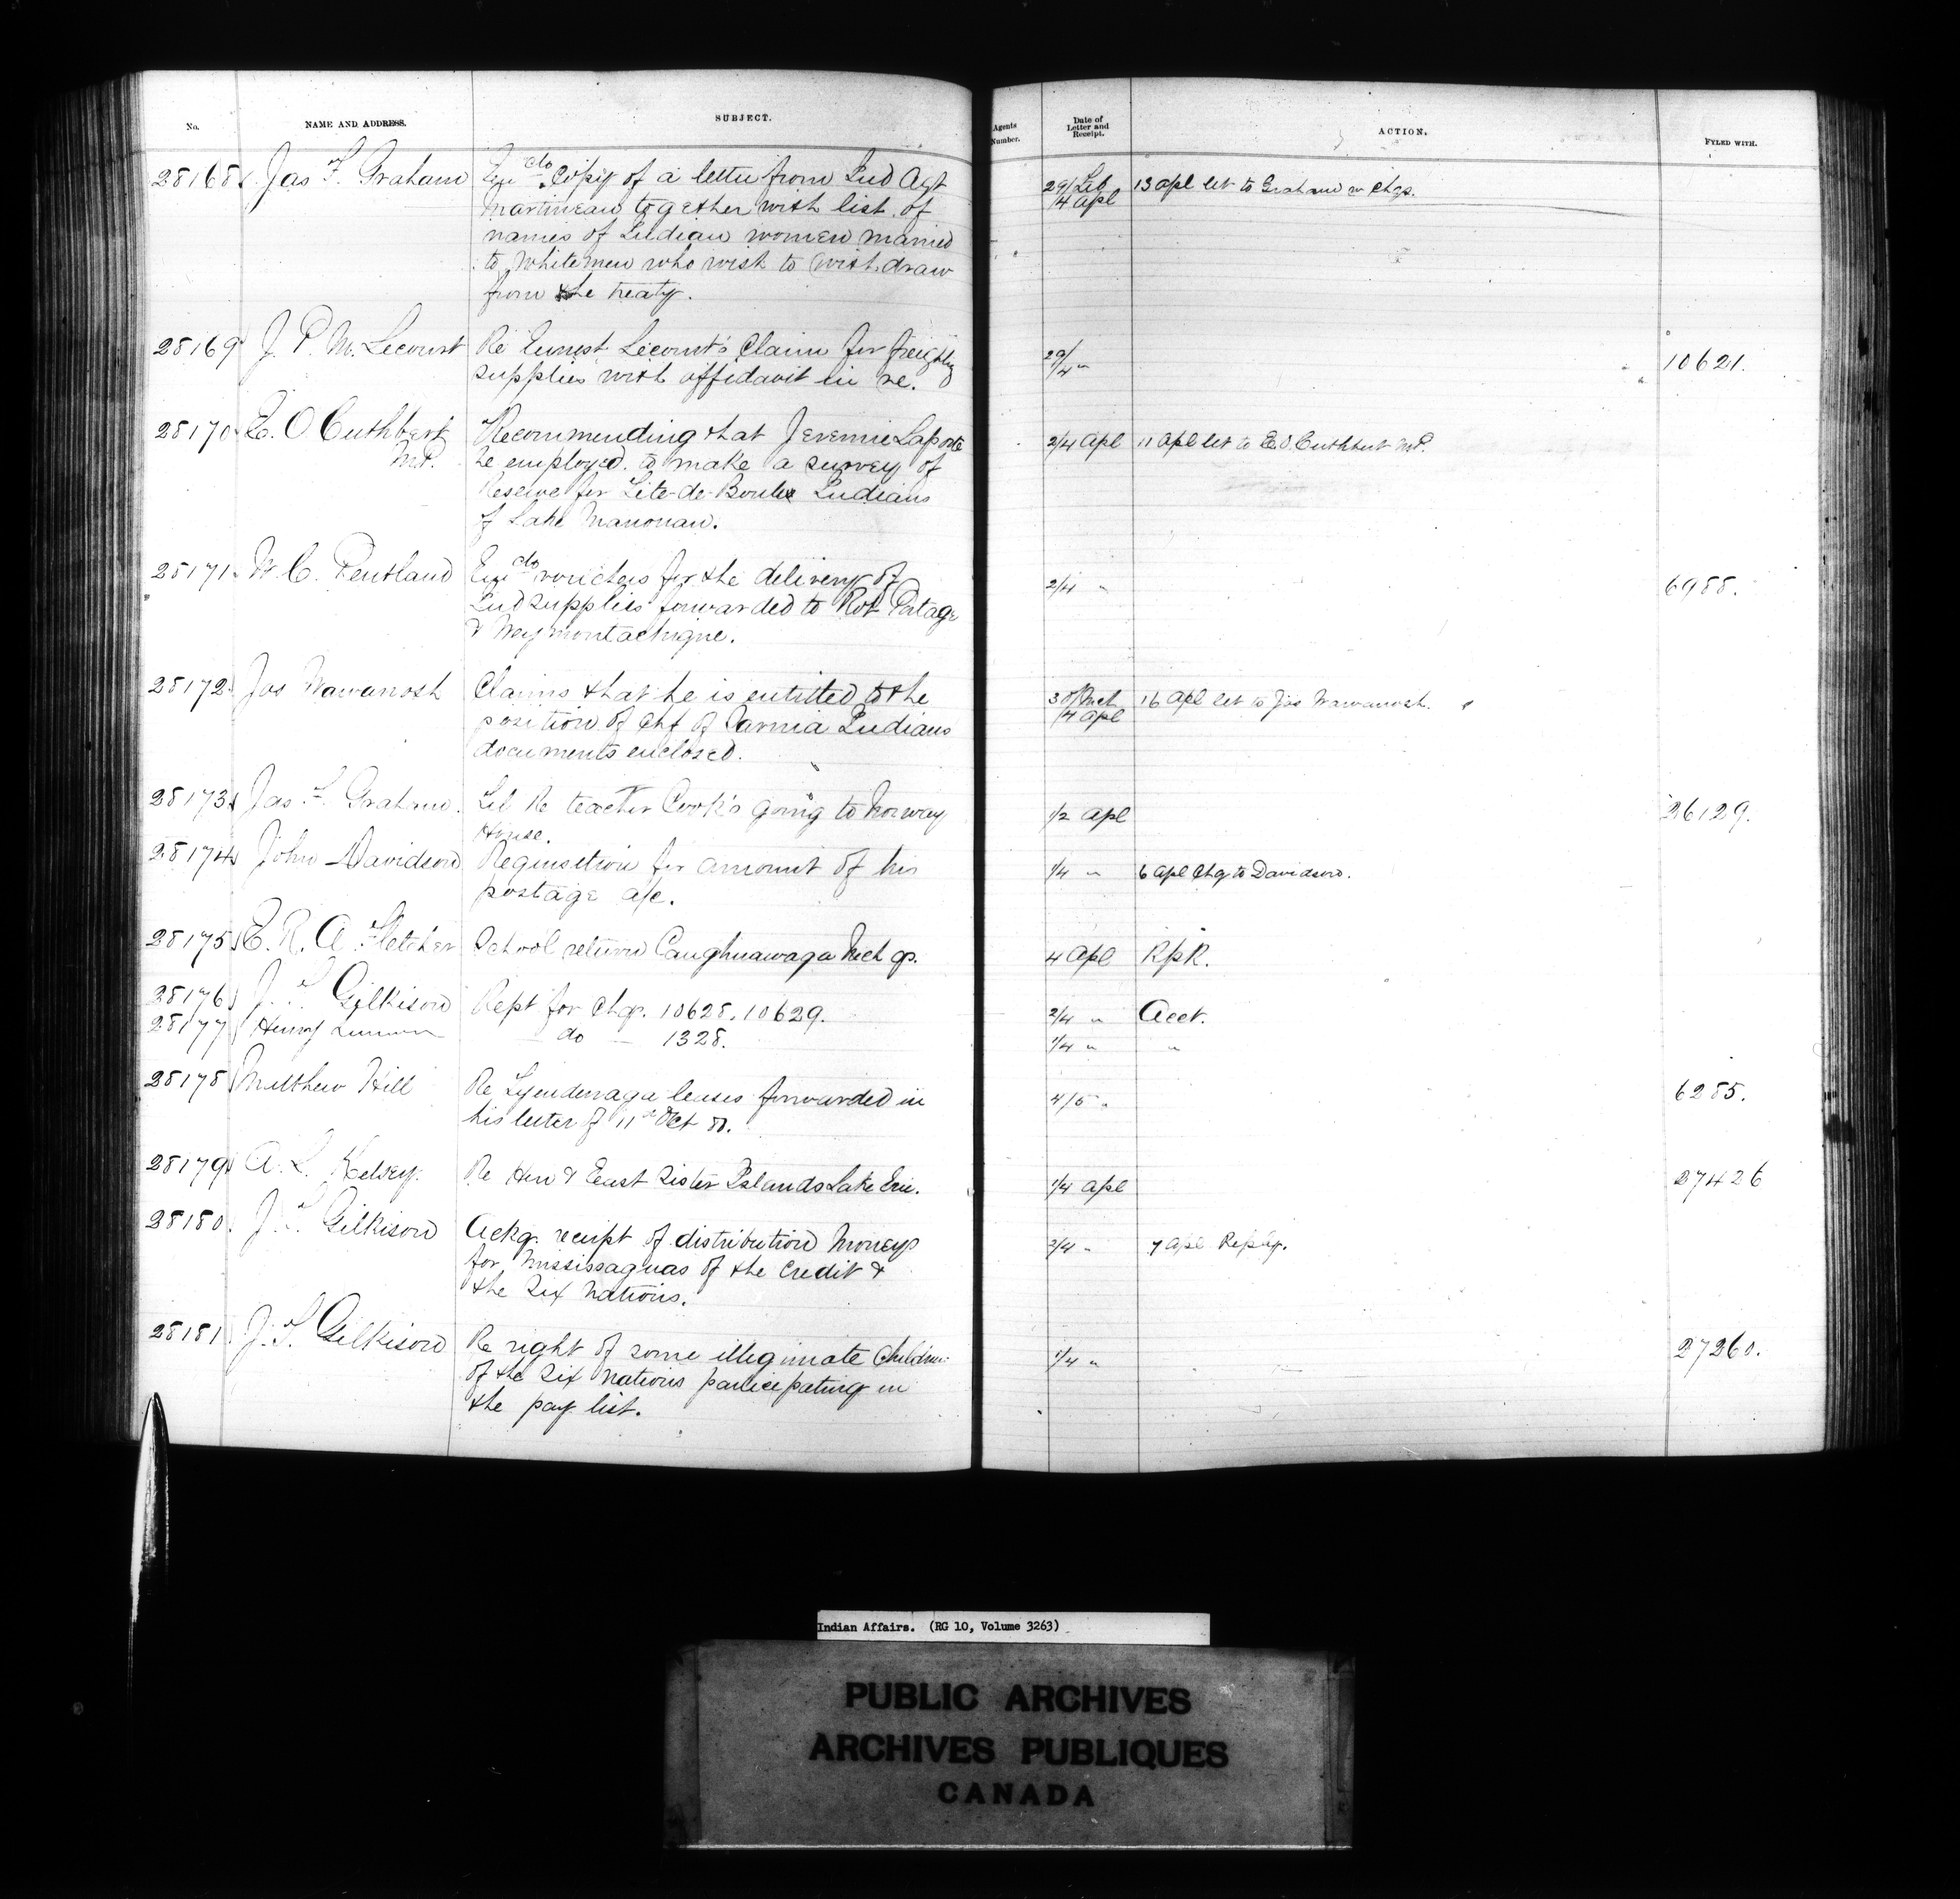 No. NAME AND ADDRESS. SUBJECT. Agents Number. Date of Letter and Receipt. ACTION. FYLED WITH.
28168 Jas F. Graham Copy of a letter from Ind Agt 29/Feb 13 apl let to Graham w chqs.
Martineau together with list of /4 apl
names of Indian women married
to Whitemen who wish to withdraw
from the treaty.
28169 J. P. M. Lecourt Re Ernest Lecourt's Claim for freighting 29/4 " 10621.
supplies with affidavit in re.
28170 E. O Cuthbert Recommending that Jeremie Laporte 2/4 apl 11 apl let to E O. Cuthbert M.P.
M.P. be employed to make a survey of
Reserve for Tete-de-Boule Indians
of Lake Manouan.
28171 W. C. Pentland vouchers for the delivery of 2/4 " 6988.
Ind supplies forwarded to Rot Portage
& Weymontachigue.
28172 Jos Wawanosh Claims that he is entitled to the 30/Mch 16 apl let to Jos Wawanosh.
position of Chf of Sarnia Indians /4 apl
documents enclosed.
28173 Jas. F. Graham. Tel Re teacher Cook's going to Norway 1/2 apl 26129.
House.
28174 John Davidson Requisition for amount of his 1/4 " 6 apl Chq to Davidson.
postage a/c.
28175 E. R. A. Fletcher School return Caughnawaga Mch qr. 4 apl RpR.
28176 J. T. Gilkison Rcpt for Chqs. 10628, 10629. 2/4 " Acct.
28177 Henry do 1328. 1/4 " "
28178 Matthew Hill Re Tyendenaga leases forwarded in 4/5 " 6285.
his letter of 11th Oct 80.
28179 A. L. Kelsey. Re Hen & East Sister Islands Lake Erie. 1/4 apl 27426
28180 J. T. Gilkison Ackg. receipt of distribution Moneys 2/4 " 7 apl
for Mississaguas of the Credit &
the Six Nations.
28181 J. T. Gilkison Re right of some illegimate Children 1/4 " 27260.
of the Six Nations participating in
the pay list.
Indian Affairs. (RG 10, Volume 3263)
PUBLIC ARCHIVES
ARCHIVES PUBLIQUES
CANADA